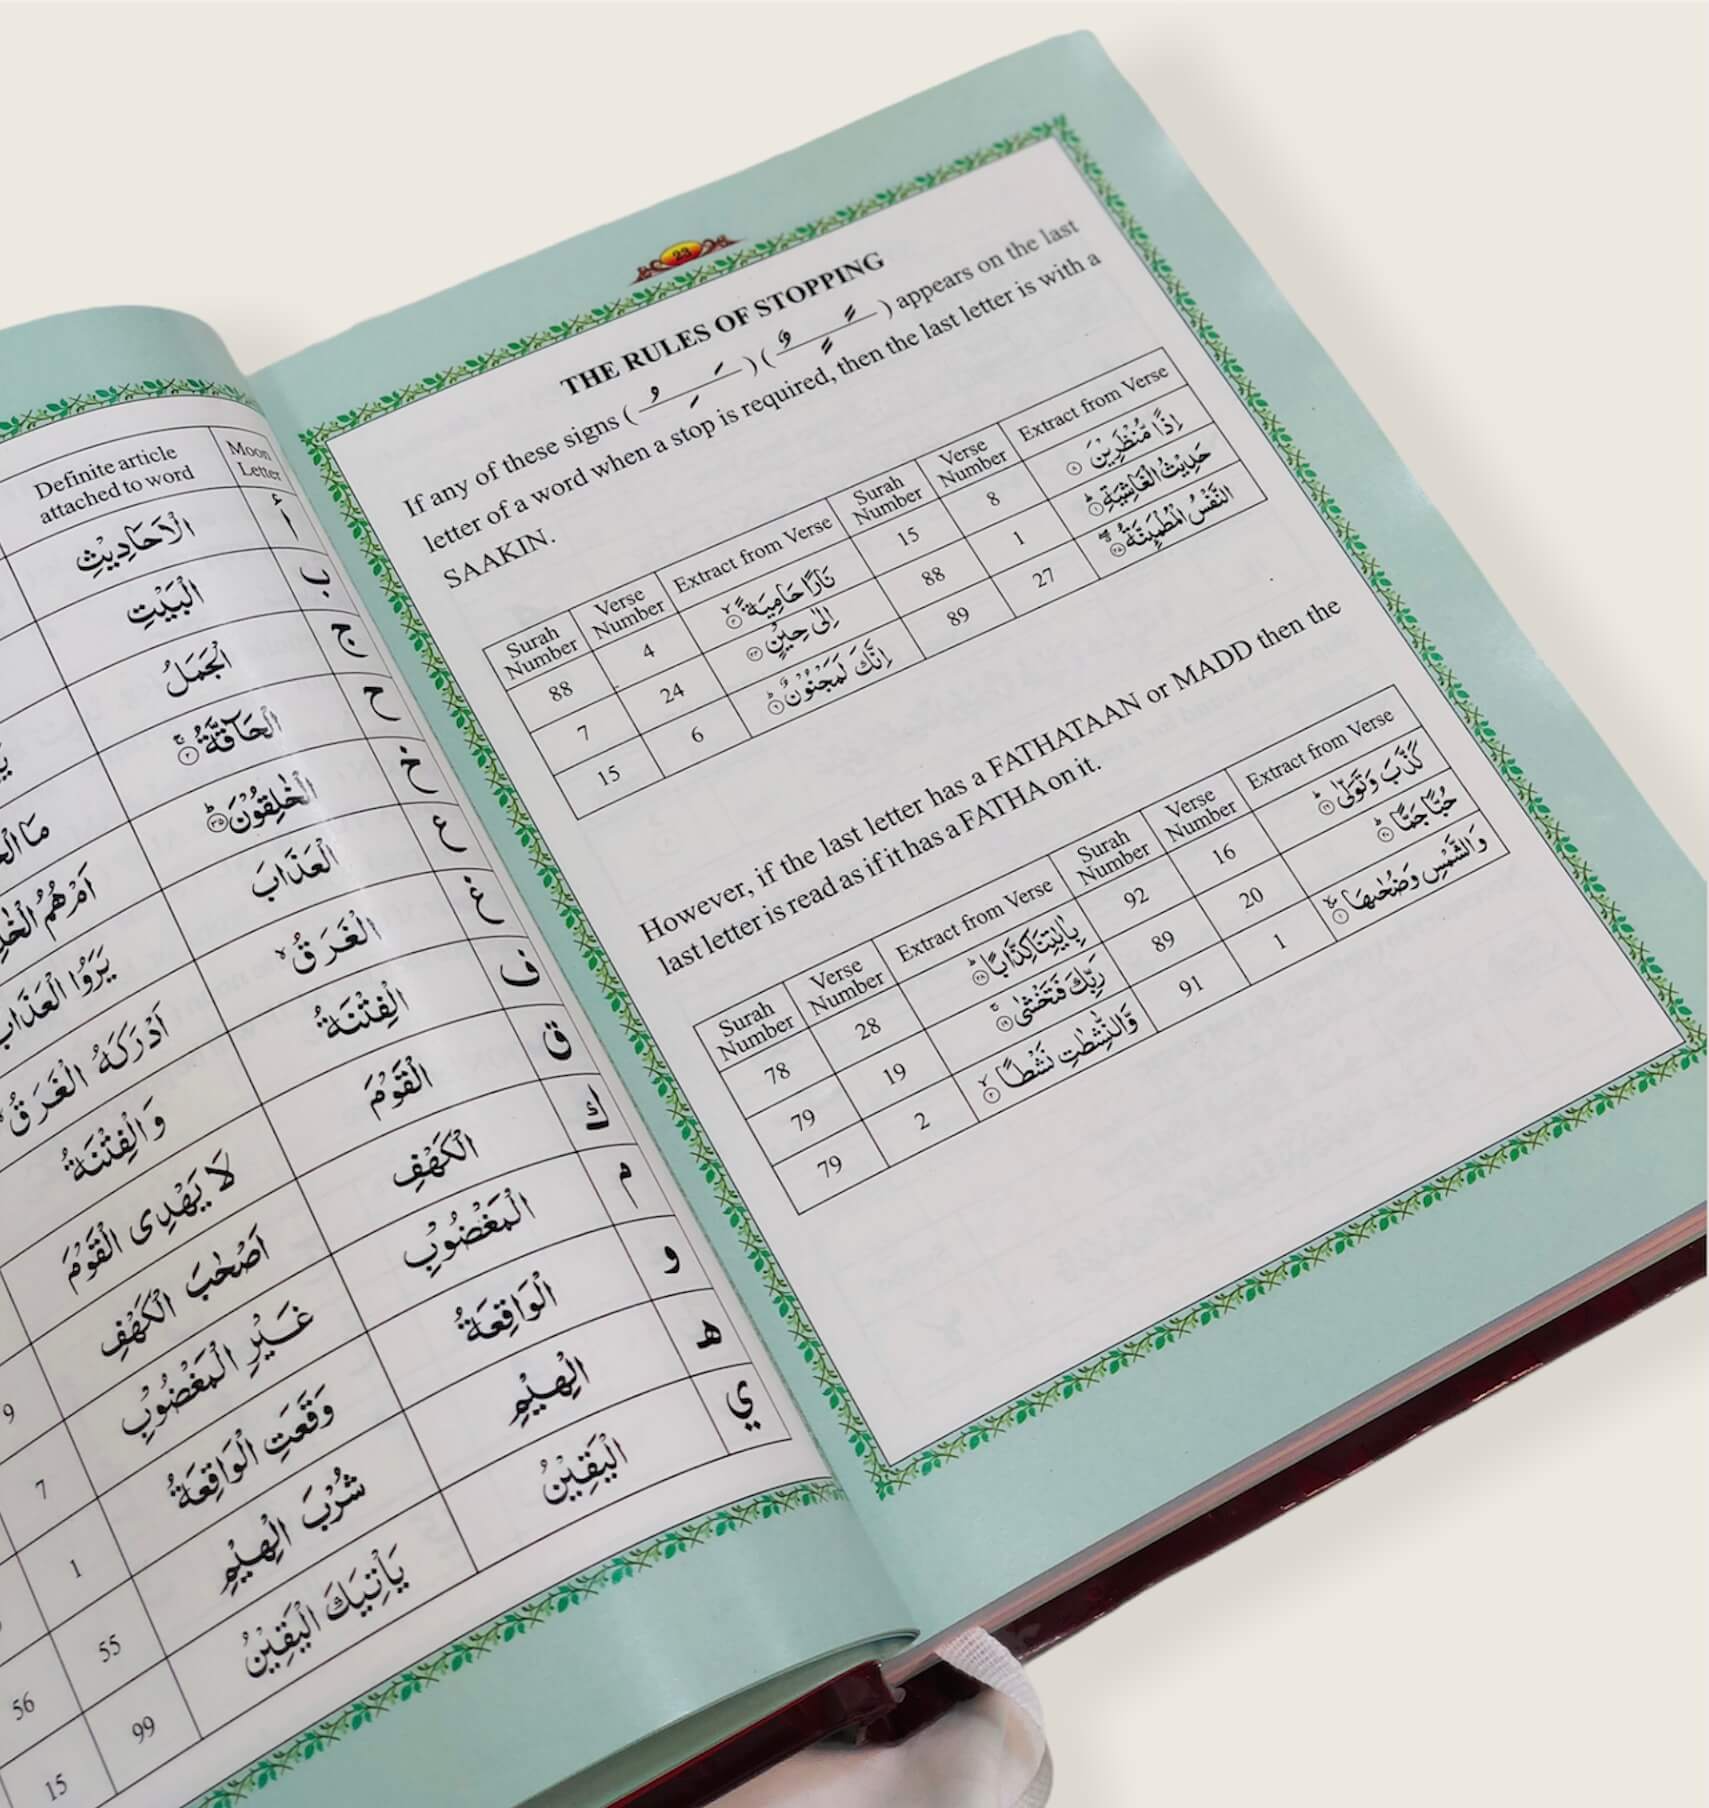 Definite article
attached to word
Moon
Letter
الْاَحَادِيْثِ
أ
الْبَيْتِ
ب
الْجَمَلُ
ج
الْحَآقَّةُ ۲
ح
مَا الْحَ
الْخٰلِقُوْنَ ۳۵
خ
اَمْ هُمُ الْخٰلِ
الْعَذَابَ
ع
يَرَوُا الْعَذَابَ
الْغَرَقُ
غ
اَدْرَكَهُ الْغَرَقُ
الْفِتْنَةُ
ف
وَالْفِتْنَةُ
الْقَوْمَ
ق
لَا يَهْدِى الْقَوْمَ
الْكَهْفِ
ك
اَصْحٰبَ الْكَهْفِ
الْمَغْضُوْبِ
م
9
غَيْرِ الْمَغْضُوْبِ
الْوَاقِعَةُ
و
7
وَقَعَتِ الْوَاقِعَةُ
الْهِيْمِ
ه
1
شُرْبَ الْهِيْمِ
الْيَقِيْنُ
ي
56
55
يَاْتِيَكَ الْيَقِيْنُ
15
99
23
THE RULES OF STOPPING
If any of these signs ( ـَـِـُ ) ( ـًـٍـٌ ) appears on the last
letter of a word when a stop is required, then the last letter is with a
SAAKIN.
Surah Number Verse Number Extract from Verse Surah Number Verse Number Extract from Verse
88 4 نَارًا حَامِيَةً 15 8 اِذًا مُّنْظَرِيْنَ
7 24 اِلٰى حِيْنٍ 88 1 حَدِيْثُ الْغَاشِيَةِ
15 6 اِنَّكَ لَمَجْنُوْنٌ 89 27 النَّفْسُ الْمُطْمَئِنَّةُ
However, if the last letter has a FATHATAAN or MADD then the
last letter is read as if it has a FATHA on it.
Surah Number Verse Number Extract from Verse Surah Number Verse Number Extract from Verse
78 28 بِاٰيٰتِنَا كِذَّابًا 92 16 كَذَّبَ وَتَوَلّٰى
79 19 رَبِّكَ فَتَخْشٰى 89 20 حُبًّا جَمًّا
79 2 وَّالنّٰشِطٰتِ نَشْطًا 91 1 وَالشَّمْسِ وَضُحٰىهَا